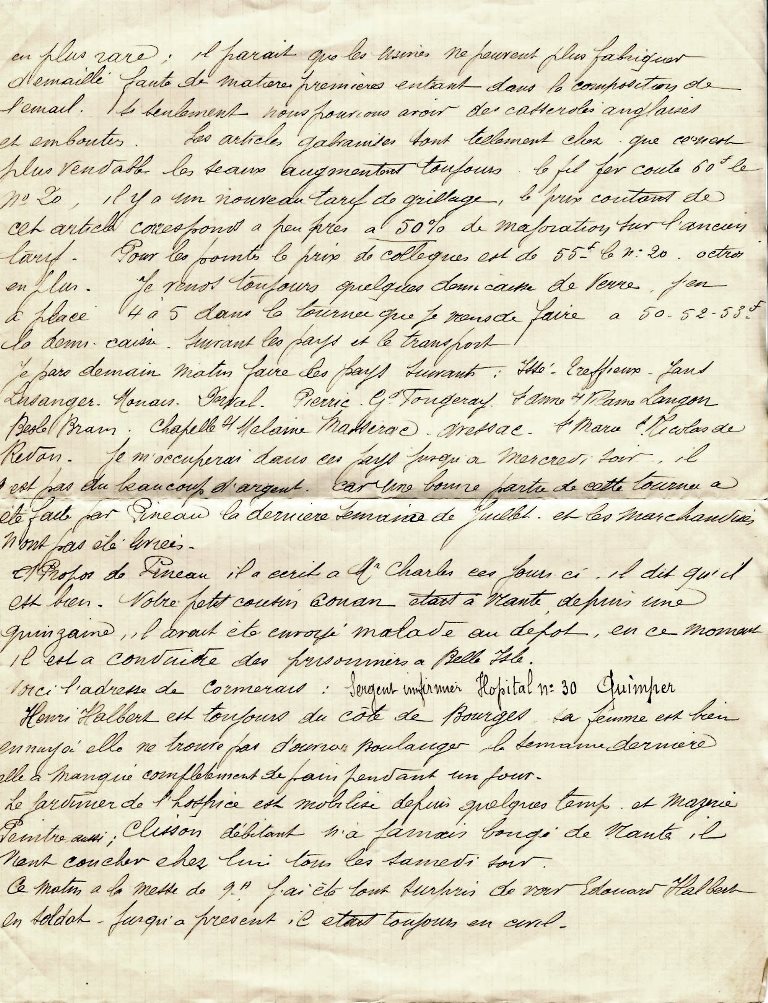 en plus rare ; il parait que les usines ne peuvent plus fabriquer
d'emaillé faute de matieres premieres entrant dans la composition de
l'email. Si seulement nous pouvions avoir des casseroles anglaises
et embouties. Les articles galvanisés sont tellement cher que ce n'est
plus vendable les seaux augmentent toujours le fil fer coute 60f le
No 20, il y a un nouveau tarif de grillage, le prix coutant de
cet article correspond a peu près a 50% de majoration sur l'ancien
tarif. Pour les pointes le prix de collegues est de 55f le n° 20. octroi
en plus. Je vends toujours quelques demi caisse de verre, j'en
ai placé 4 à 5 dans la tournée que je viens de faire a 50-52-53f
la demi-caisse suivant les pays et le transport
Je pars demain matin faire les pays suivants : Issé. Treffieux. Jans
Lusanger. Mouais. Derval. Pierric. Gd Fougeray. Ste Anne St Langon
Beslé Brain. Chapelle St Melaine Masserac. Avessac. Ste Marie St Nicolas de
Redon. Je m'occuperai dans ces pays jusqu'a Mercredi soir, il
est pas du beaucoup d'argent. car une bonne partie de cette tournée a
été faite par Pineau la derniere semaine de Juillet. et les marchandises
n'ont pas été livrées.
A Propos de Pineau il a ecrit a Mr Charles ces jours ci, il dit qu'il
est bien. Notre petit cousin Couan etait a Nante depuis une
quinzaine, il avait été envoyé malade au depot, en ce moment
il est a conduire des prisonniers a Belle Isle.
Voici l'adresse de Cormerais : Sergent infirmier Hopital n° 30 Quimper
Henri Halbert est toujours du côté de Bourges sa femme est bien
ennuyé elle ne trouve pas d'ouvrier Boulanger la semaine derniere
elle a manqué complètement de pain pendant un jour.
Le Jardinier de l'hospice est mobilisé depuis quelques temp. et Mazerie
Peintre aussi ; Clisson débitant n'a jamais bougé de Nante il
vient coucher chez lui tous les samedi soir
Ce matin a la messe de 9h j'ai été tout surpris de voir Edouard Halbert
en soldat. Jusqu'a présent il etait toujours en civil.